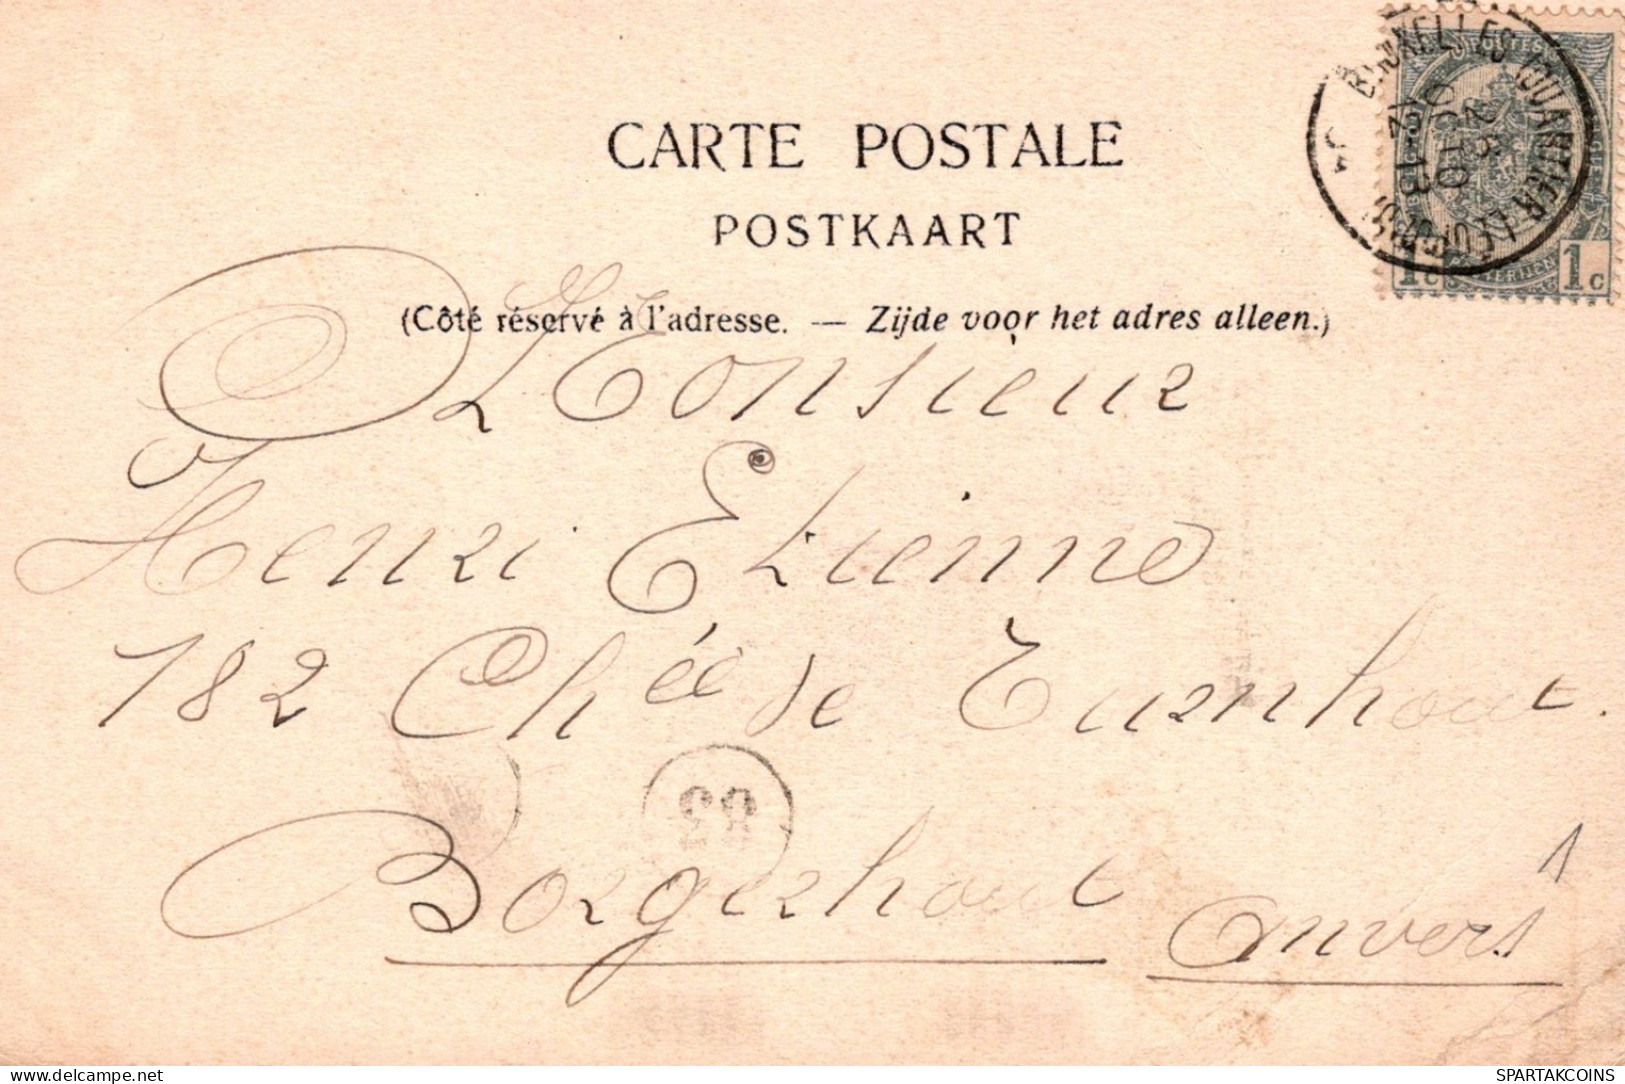 CARTE POSTALE
POSTKAART
(Côté réservé à l'adresse. — Zijde voor het adres alleen.)
BRUXELLES (QUARTIER-LEOPOLD)
12-13
POSTES
1c 1c
Monsieur
Henri Etienne
182 Chée de Turnhout.
83
Borgerhout Anvers
Delcampe.net
SPARTAKCOINS